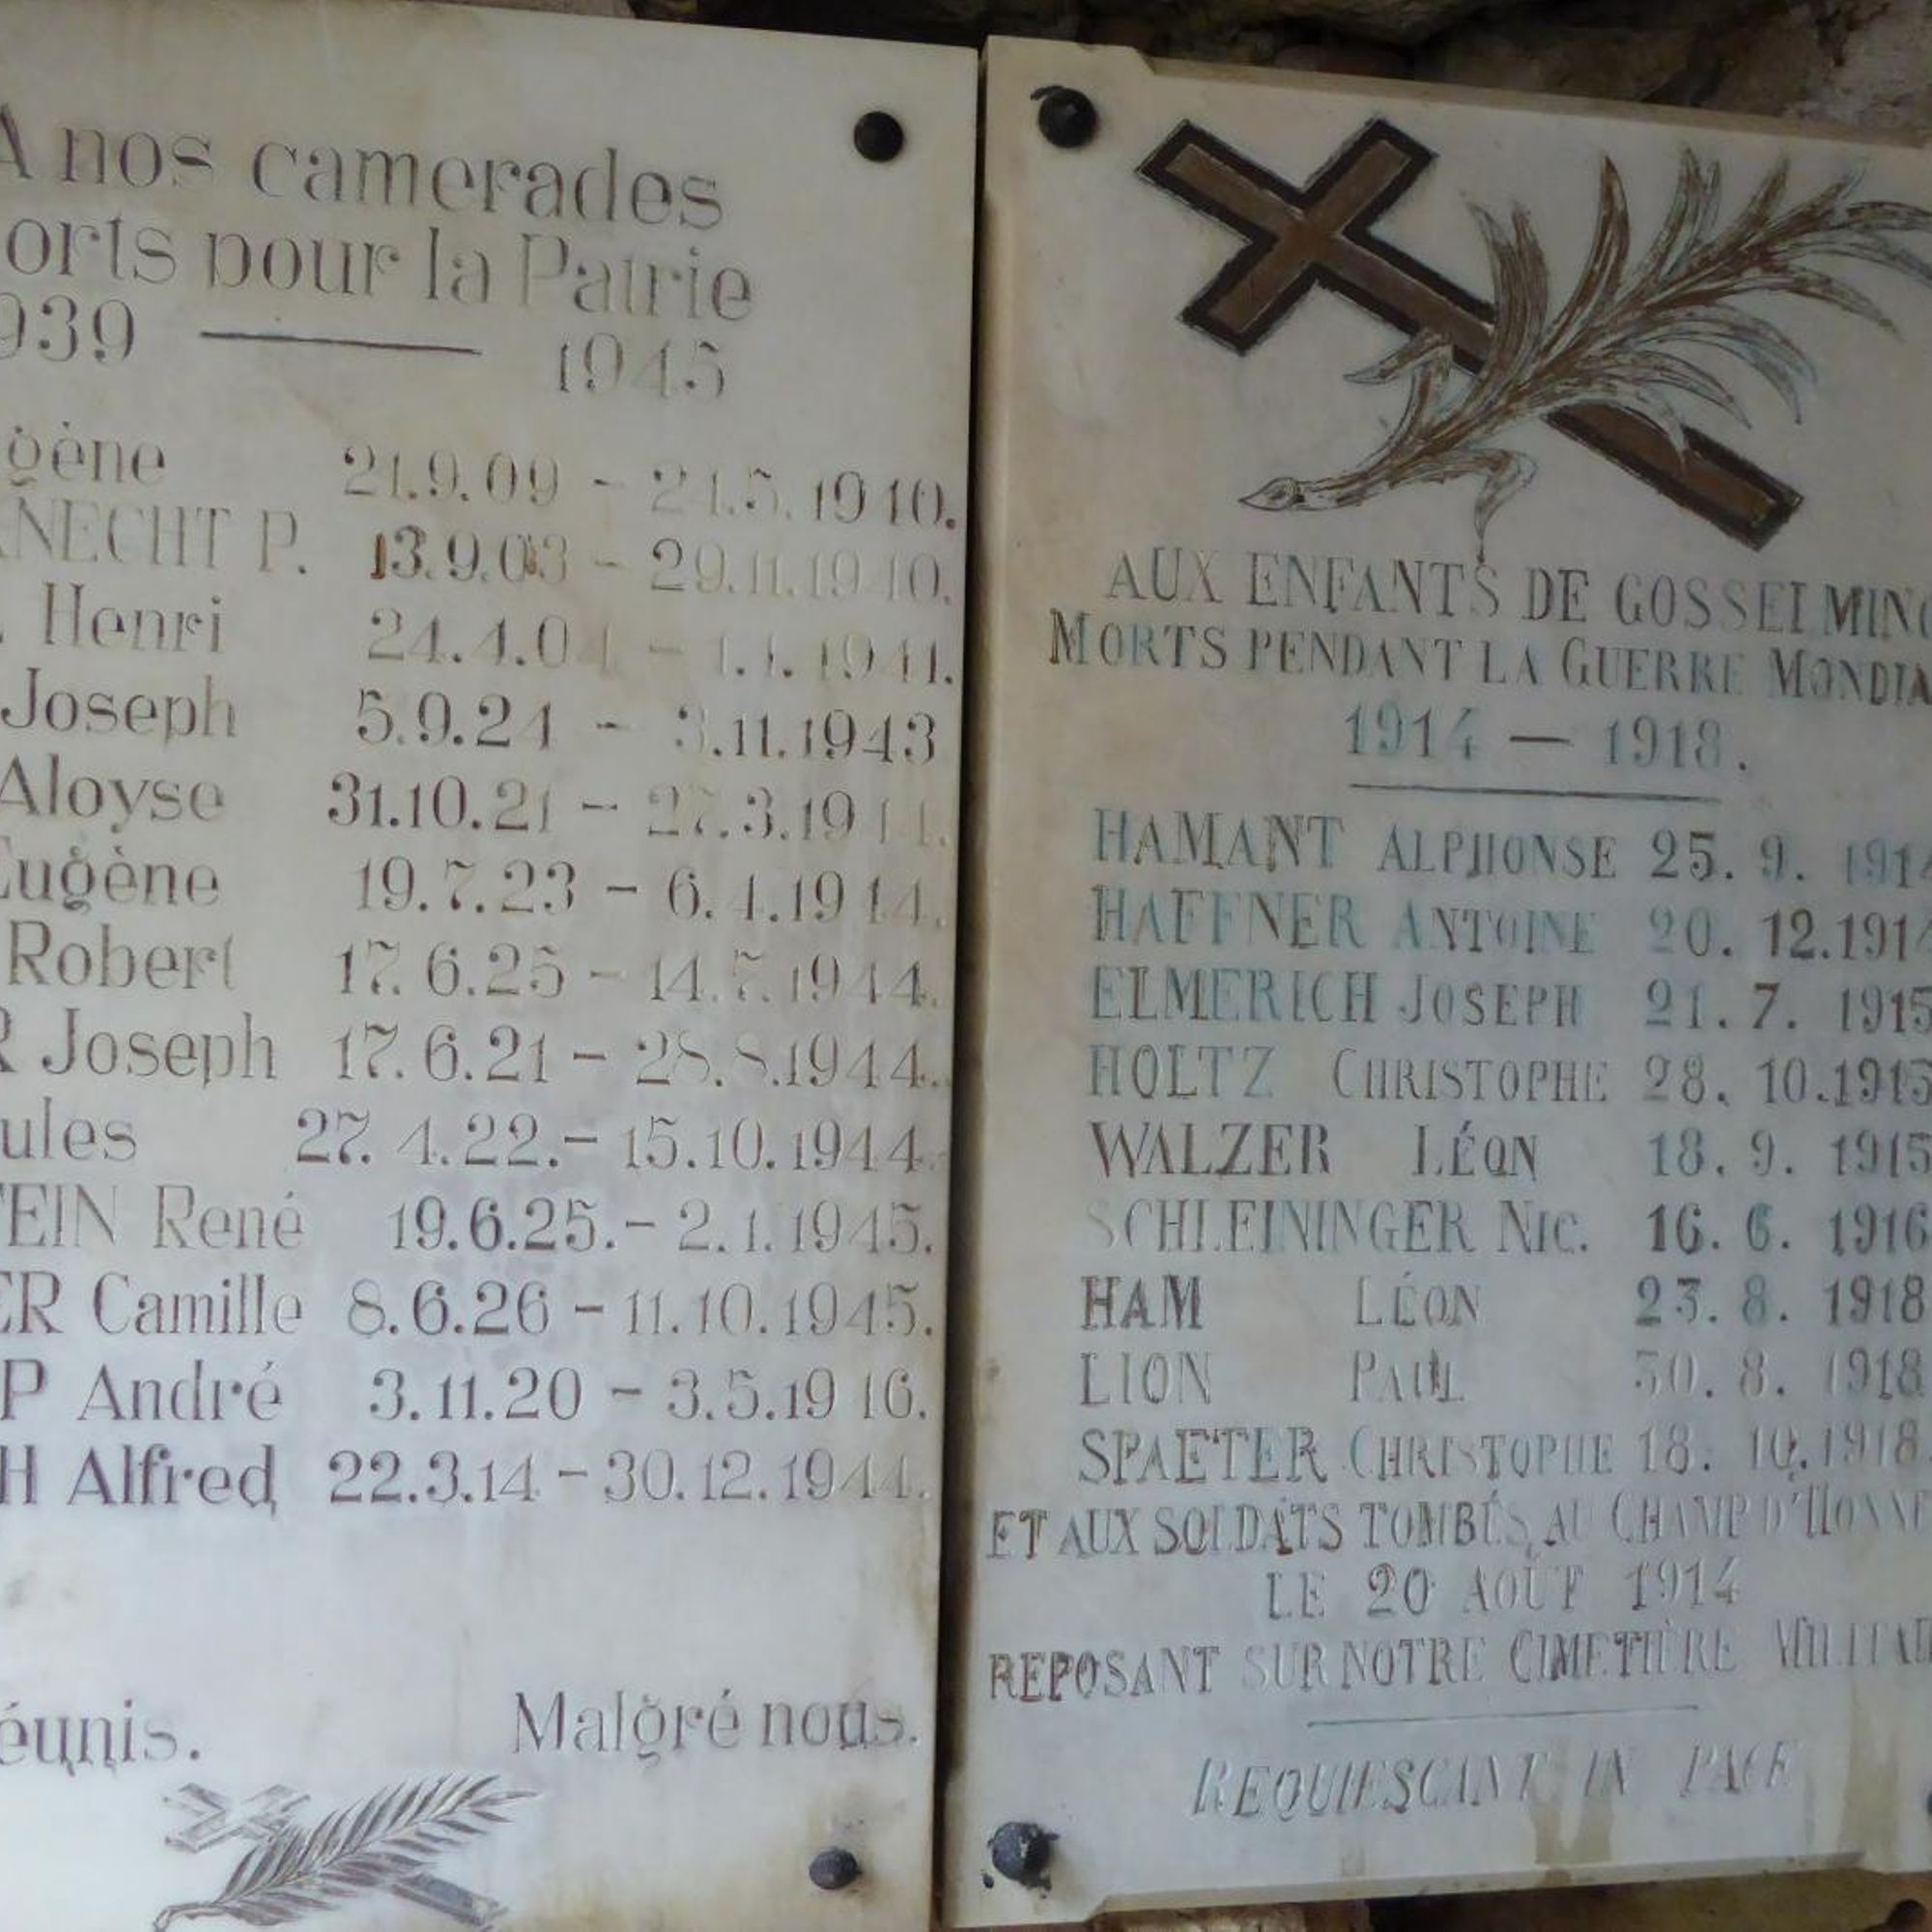 A nos camerades
orts pour la Patrie
939 — 1945
gène 21.9.09 - 21.5.1940.
NECHT P. 13.9.03 - 29.11.1940.
Henri 24.4.04 - 1941.
Joseph 5.9.24 - 3.11.1943
Aloyse 31.10.21 - 27.3.1944.
Eugène 19.7.23 - 6.4.1944.
Robert 17.6.25 - 14.7.1944.
R Joseph 17.6.21 - 28.8.1944.
ules 27.4.22.- 15.10.1944.
TEIN René 19.6.25.- 2.1.1945.
ER Camille 8.6.26 - 11.10.1945.
P André 3.11.20 - 3.5.1946.
H Alfred 22.3.14 - 30.12.1944.
éunis. Malgré nous.
AUX ENFANTS DE GOSSELMING
MORTS PENDANT LA GUERRE MONDIA
1914 — 1918.
HAMANT ALPHONSE 25. 9. 1914
HAFFNER ANTOINE 20. 12.1914
ELMERICH JOSEPH 21. 7. 1915
HOLTZ CHRISTOPHE 28. 10.1915
WALZER LÉON 18. 9. 1915
SCHLEININGER NIC. 16. 6. 1916
HAM LÉON 23. 8. 1918
LION PAUL 30. 8. 1918
SPAETER CHRISTOPHE 18. 10.1918.
ET AUX SOLDATS TOMBÉS AU CHAMP D'HONNE
LE 20 AOÛT 1914
REPOSANT SUR NOTRE CIMETIÈRE MILITAI
REQUIESCANT IN PACE